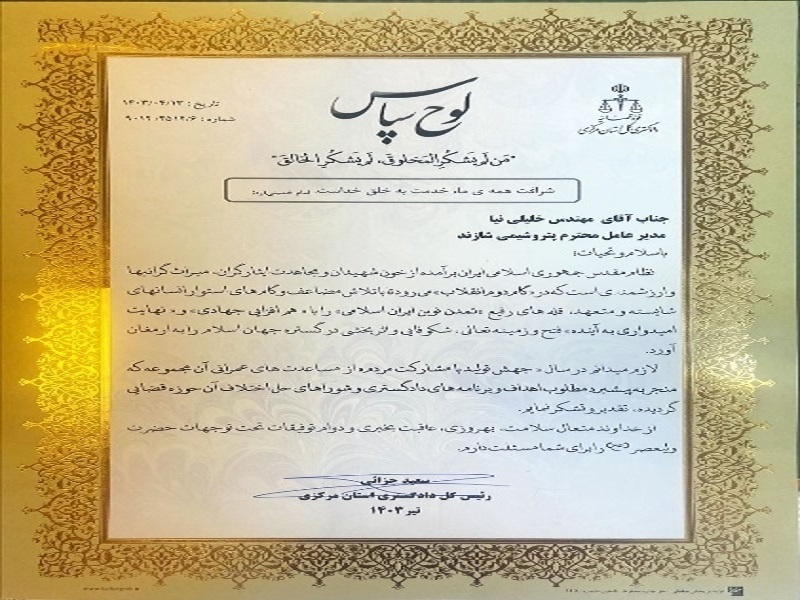 لوح سپاس
تاریخ : ۱۴۰۳/۰۴/۱۳
شماره :
قوه قضاییه
دادگستری کل استان مرکزی
"مَن لَم یَشکُرِ المَخلوق، لَم یَشکُرِ الخالِق"
شرافت همه ی ما، خدمت به خلق خداست.
جناب آقای مهندس خلیلی نیا
مدیر عامل محترم پتروشیمی شازند
باسلام و تحیات:
نظام مقدس جمهوری اسلامی ایران برآمده از خون شهیدان و مجاهدت ایثارگران، میراث گرانبها
و ارزشمندی است که در «گام دوم انقلاب» می رود تا با تلاش مضاعف و گام های استوار انسانهای
شایسته و متعهد، قله های رفیع «تمدن نوین ایران اسلامی» را با «هم افزایی جهادی» و «نهایت
امیدواری به آینده» فتح و زمینه تعالی، شکوفایی و اثربخشی در گستره جهان اسلام را به ارمغان
آورد.
لازم میدانم در سال «جهش تولید با مشارکت مردم» از مساعدت های عمرانی آن مجموعه که
منجر به پیشبرد مطلوب اهداف و برنامه های دادگستری و شوراهای حل اختلاف آن حوزه قضایی
گردیده، تقدیر و تشکر نمایم.
از خداوند متعال سلامت، بهروزی، عاقبت بخیری و دوام توفیقات تحت توجهات حضرت
ولیعصر (عج) را برای شما مسئلت دارم.
سعید جزائی
رئیس کل دادگستری استان مرکزی
تیر ۱۴۰۳